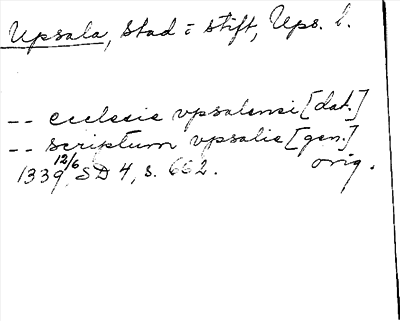 Upsala, Stad = stift, Ups. l.
-- ecclesie vpsalensi [dat.]
-- scriptum vpsalie [gen.]
1339 12/6, SD 4, s. 662. orig.